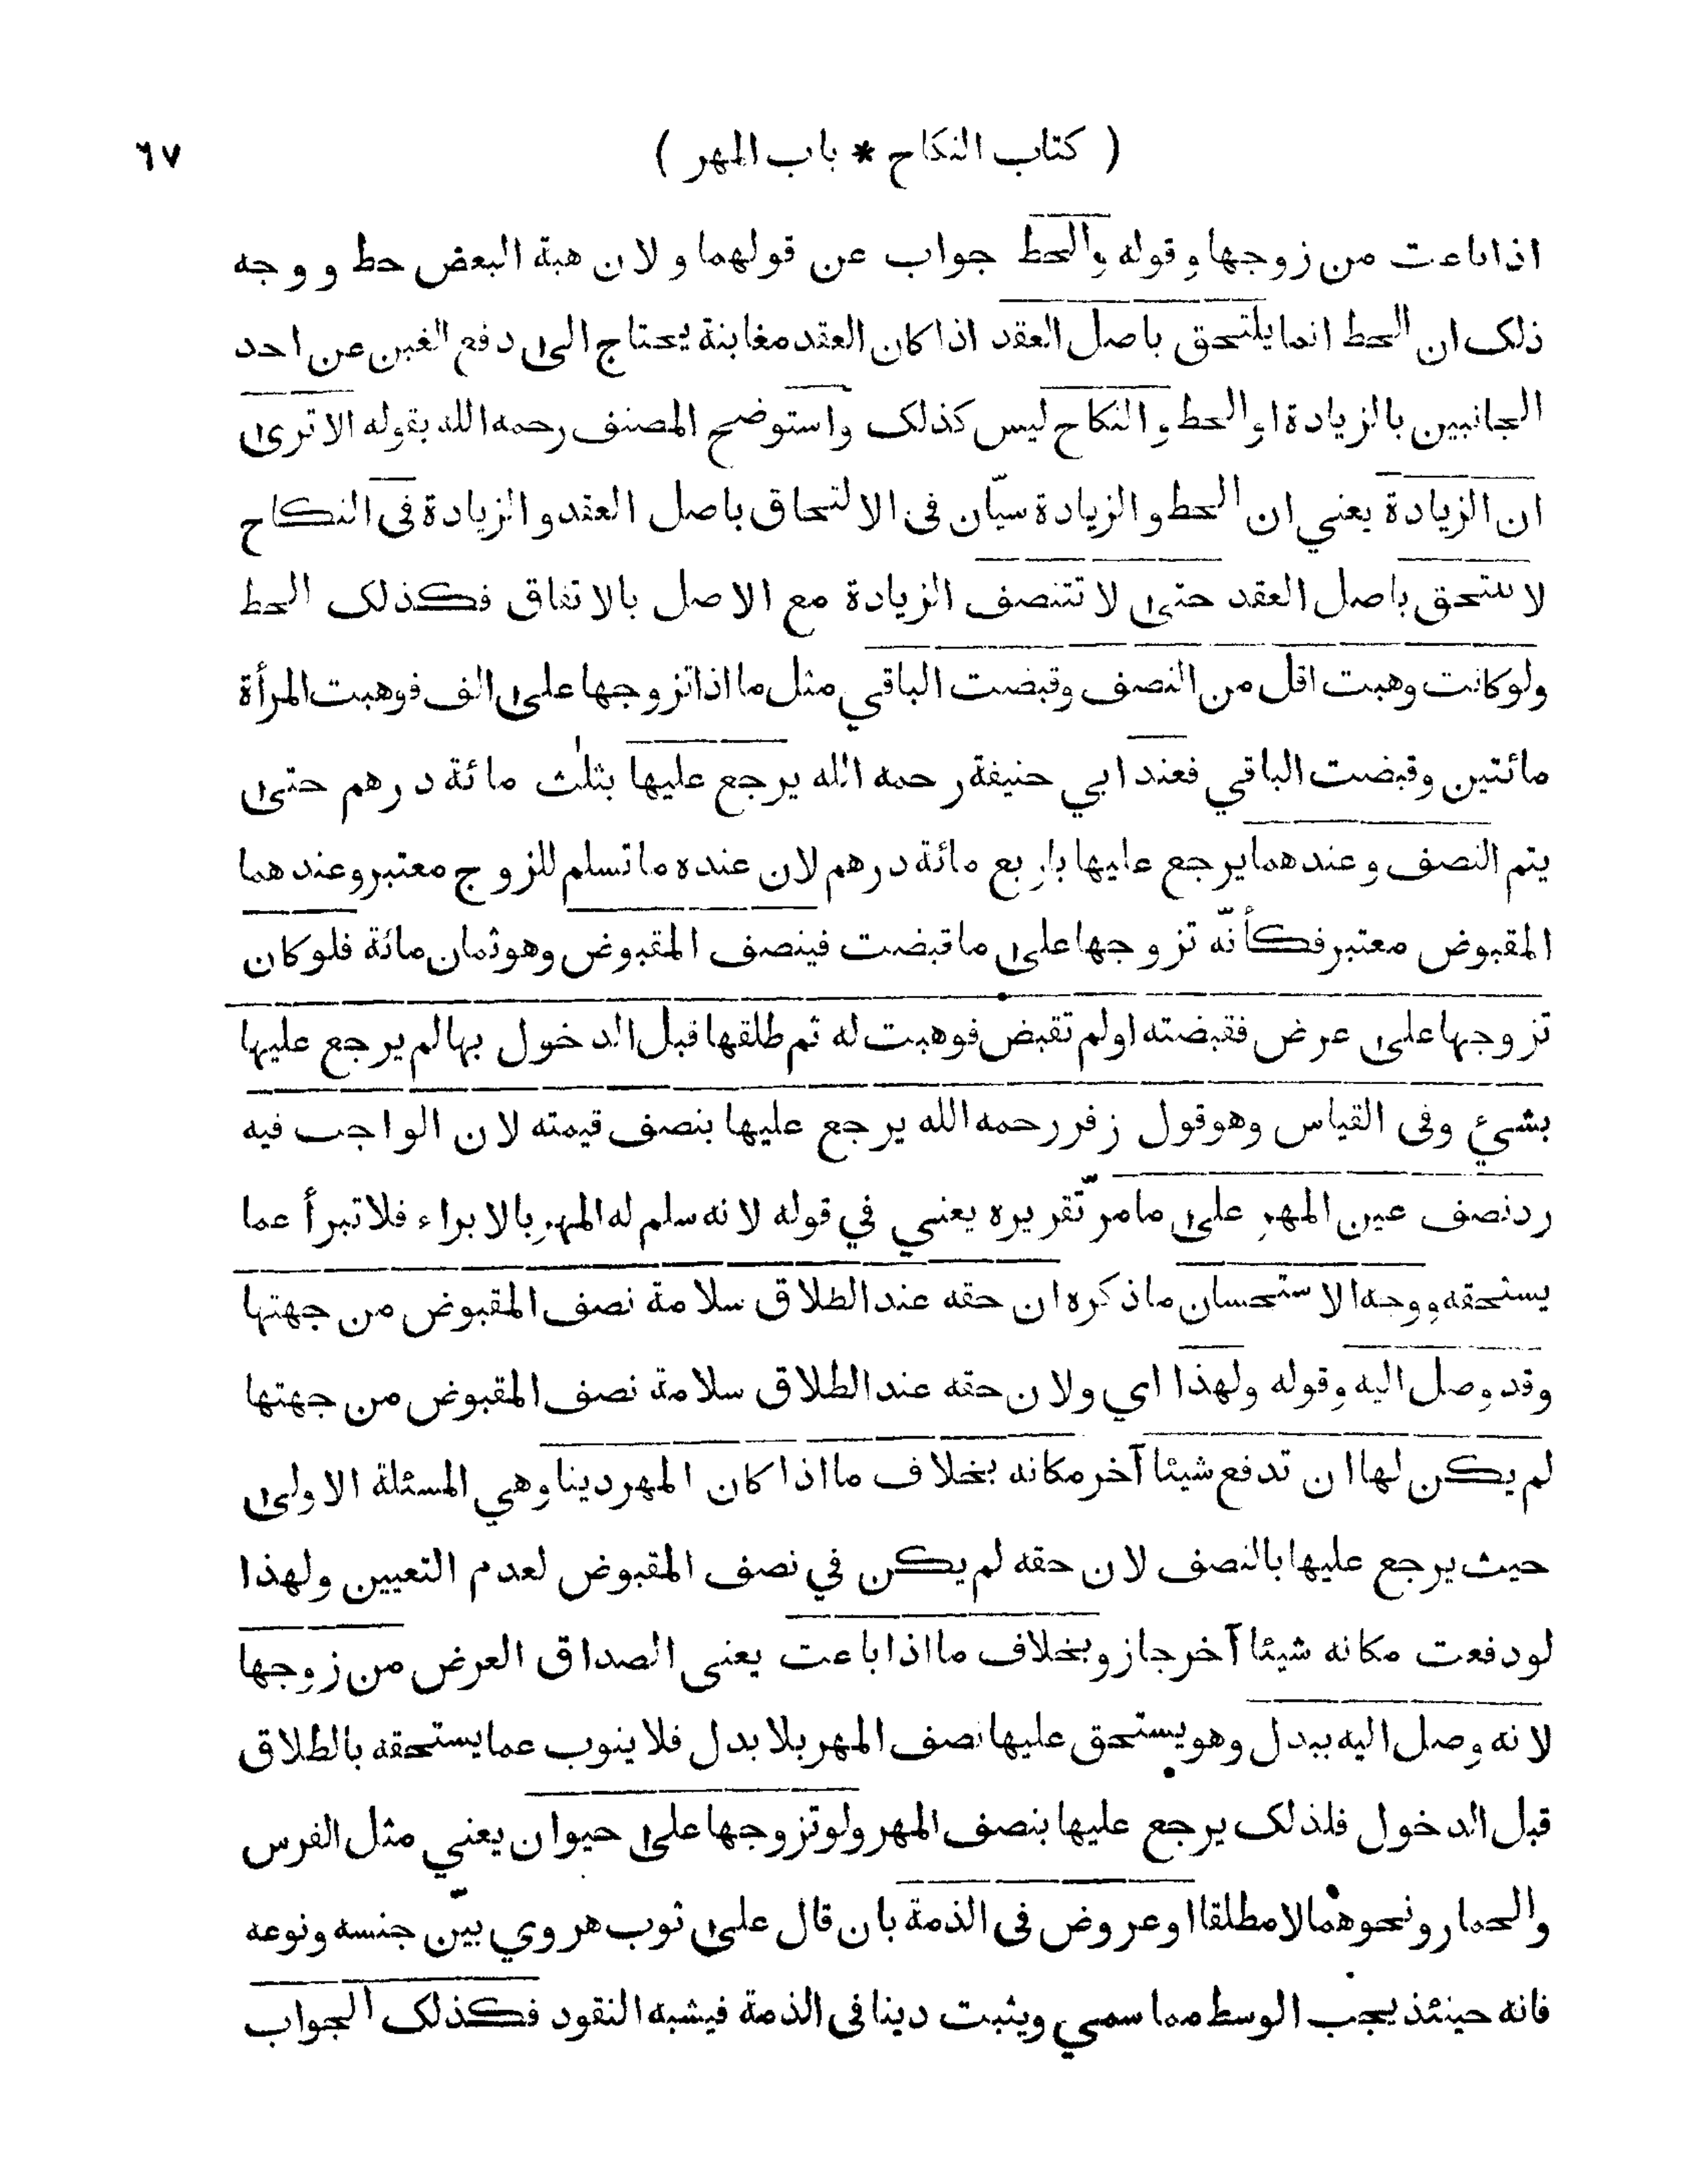 ( كتاب النكاح * باب المهر ) ٦٧
اذا باعت من زوجها وقوله والحط جواب عن قولهما ولان هبة البعض حط ووجه
ذلك ان الحط انما يلتحق باصل العقد اذا كان العقد مغابنة يحتاج الى دفع الغبن عن احد
الجانبين بالزيادة او الحط والنكاح ليس كذلك واستوضح المصنف رحمه الله بقوله الا ترى
ان الزيادة يعني ان الحط والزيادة سيّان فى الالتحاق باصل العقد والزيادة فى النكاح
لا تلتحق باصل العقد حتى لا تتنصف الزيادة مع الاصل بالاتفاق فكذلك الحط
ولو كانت وهبت اقل من النصف وقبضت الباقي مثل ما اذا تزوجها على الف فوهبت المرأة
مائتين وقبضت الباقي فعند ابي حنيفة رحمه الله يرجع عليها بثلث مائة درهم حتى
يتم النصف وعندهما يرجع عليها باربع مائة درهم لان عنده ما تسلم للزوج معتبر وعندهما
المقبوض معتبر فكأنّه تزوجها على ما قبضت فينصف المقبوض وهو ثمان مائة فلو كان
تزوجها على عرض فقبضته او لم تقبض فوهبت له ثم طلقها قبل الدخول بها لم يرجع عليها
بشيئ وفى القياس وهو قول زفر رحمه الله يرجع عليها بنصف قيمته لان الواجب فيه
رد نصف عين المهر على ما مر تقريره يعني في قوله لانه سلم له المهر بالابراء فلا تبرأ عما
يستحقه ووجه الاستحسان ما ذكره ان حقه عند الطلاق سلامة نصف المقبوض من جهتها
وقد وصل اليه وقوله ولهذا اي ولان حقه عند الطلاق سلامة نصف المقبوض من جهتها
لم يكن لها ان تدفع شيئا آخر مكانه بخلاف ما اذا كان المهر دينا وهي المسئلة الاولى
حيث يرجع عليها بالنصف لان حقه لم يكن في نصف المقبوض لعدم التعيين ولهذا
لو دفعت مكانه شيئا آخر جاز وبخلاف ما اذا باعت يعنى الصداق العرض من زوجها
لانه وصل اليه ببدل وهو يستحق عليها نصف المهر بلا بدل فلا ينوب عما يستحقه بالطلاق
قبل الدخول فلذلك يرجع عليها بنصف المهر ولو تزوجها على حيوان يعني مثل الفرس
والحمار ونحوهما لا مطلقا او عروض فى الذمة بان قال على ثوب هروي بيّن جنسه ونوعه
فانه حينئذ يجب الوسط مما سمي ويثبت دينا فى الذمة فيشبه النقود فكذلك الجواب